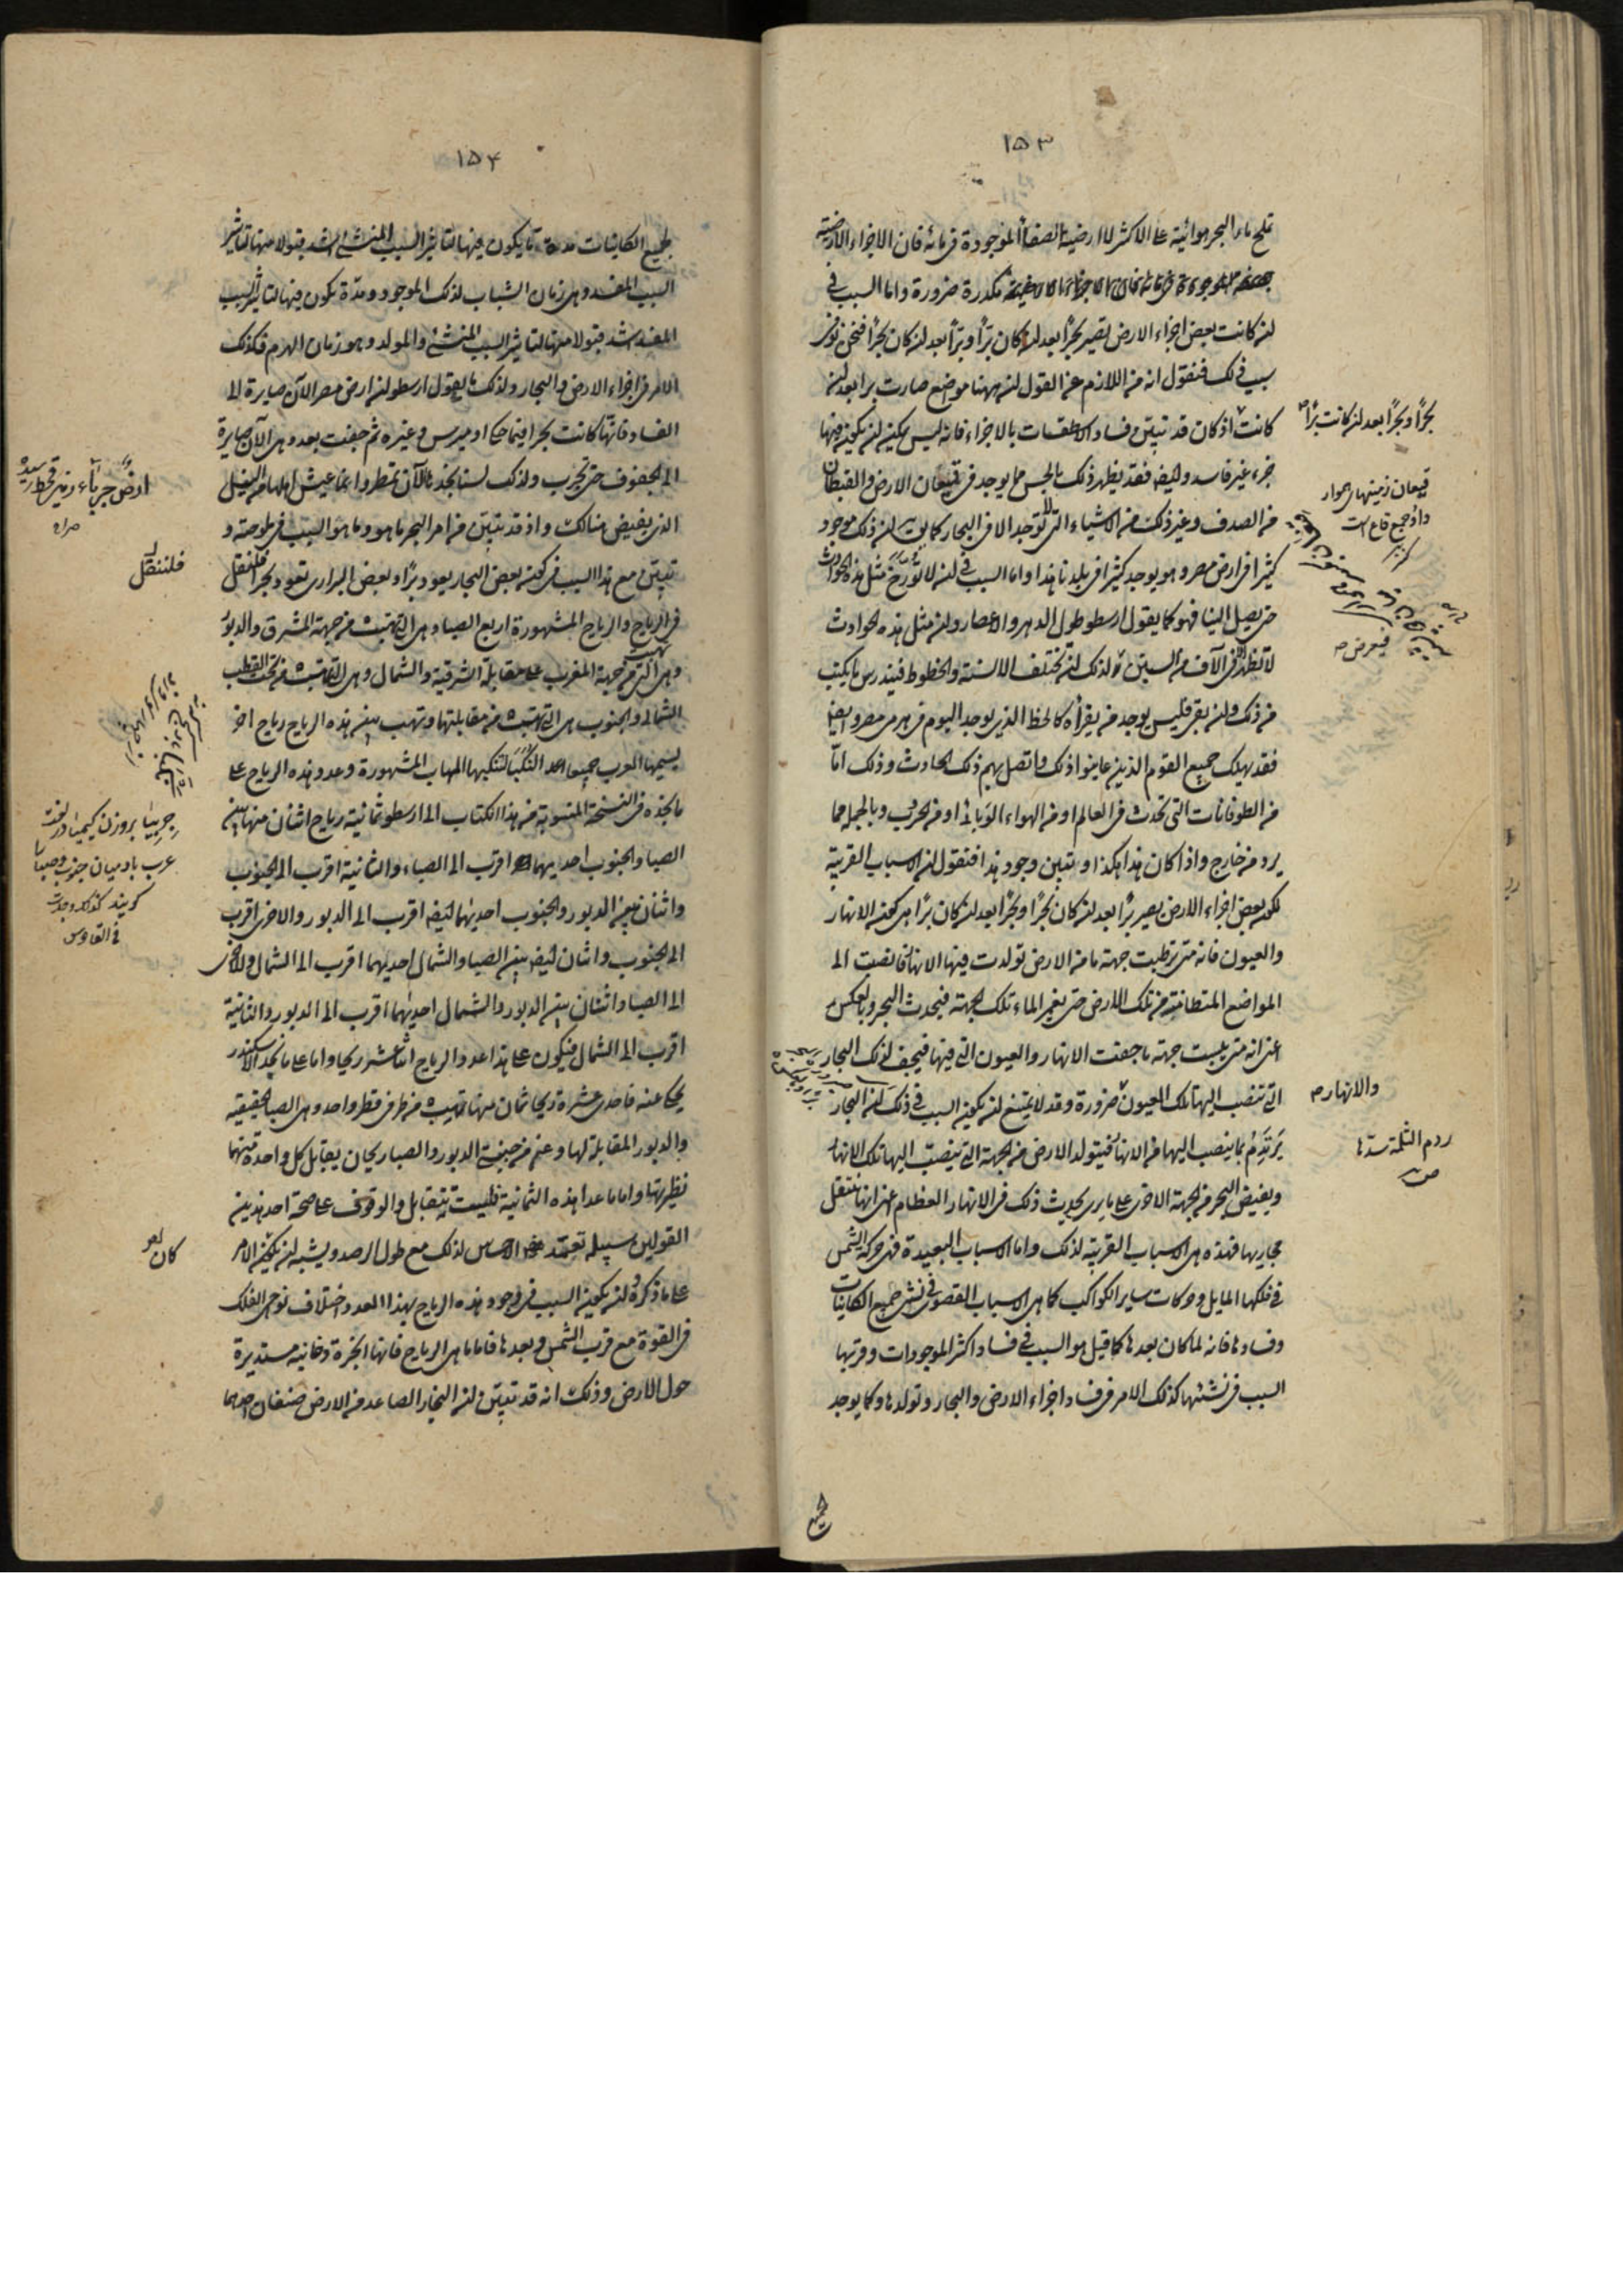 ١٥٣
تملح ماء البحر هوائية على الاكثر لا ارضية الصفا الموجودة فى مائه فان الاجزاء الارضية
مكدرة ضرورة واما السبب فى
ان كانت بعض اجزاء الارض تصير بحرًا بعد ان كان برًا وبرًا بعد ان كان بحرًا فنحن نوفى
سبب ذلك فنقول انه من اللازم عن القول ان ههنا موضع صارت برا بعد ان
كانت اذ كان قد تبين فساد الاسطقسات بالاجزاء فانه ليس يمكن ان يكون فيها
جزء غير فاسد وايضا فقد يظهر ذلك بالحس مما يوجد فى قيعان الارض والقيطان
من الصدف وغير ذلك من الاشياء التى لا توجد الا فى البحار كما يق ان ذلك موجود
كثيرا فى ارض مصر وهو يوجد كثيرا فى بلدنا هذا واما السبب فى ان لا تورخ مثل هذه الحوادث
حتى يصل الينا فهو كما يقول ارسطو طول الدهر والاعصار وان مثل هذه الحوادث
لا تظهر فى الآف من السنين ولذلك تختلف الالسنة والخطوط فيندرس ما يكتب
من ذلك وان بقى فليس يوجد من يقرأه كالخط الذى يوجد اليوم فى هرمى مصر وايضا
فقد يهلك جميع القوم الذين عاينوا ذلك واتصل بهم ذلك الحادث وذلك امّا
من الطوفانات التى تحدث فى العالم او من الهواء الوبائى او من الحروب وبالجملة مما
يرد من خارج واذا كان هذا هكذا وتبين وجود هذا فنقول ان الاسباب القريبة
لكون بعض اجزاء الارض يصير برًا بعد ان كان بحرًا وبحرًا بعد ان كان برًا هى كون الانهار
والعيون فانه متى ترطبت جهة ما من الارض تولدت فيها الانهار فانصبت الى
المواضع المتطامنة من تلك الارض حتى يغمر الماء تلك الجهة فيحدث البحر وبالعكس
اعنى انه متى يبست جهة ما جفت الانهار والعيون التى فيها فيجف لذلك البحار
التى تنصب اليها تلك العيون ضرورة وقد لا يمتنع ان يكون السبب فى ذلك ان البحار
يرتدم بما ينصب اليها من الانهار فيتولد الارض من الجهة التى ينصب اليها تلك الانهار
ويفيض البحر من الجهة الاخرى على ما يرى يحدث ذلك فى الانهار العظام اعنى انها تنتقل
مجاريها فهذه هى الاسباب القريبة لذلك واما الاسباب البعيدة فهى حركة الشمس
فى فلكها المايل وحركات ساير الكواكب كما هى الاسباب القصوى فى نشئ جميع الكائنات
وفسادها فانه لما كان بعدها كما قيل هو السبب فى فساد اكثر الموجودات وقربها
السبب فى نشئها كذلك الامر فى فساد اجزاء الارض والبحار وتولدها وكما يوجد
لجميع
بحرًا وبحرًا بعد ان كانت برًا ص
قيعان زمينهاى هموار
واو جمع قاع است
كنز
فيعرض ص
والانهار ص
ردم الثلمة سدها
ص
١٥٤
لجميع الكائنات مدة ما يكون فيها لتاثير السبب المنشئ اشد قبولا منها لتاثير
السبب المفسد وهى زمان الشباب لذلك الموجود ومدة يكون فيها لتاثير السبب
المفسد اشد قبولا منها لتاثير السبب المنشئ والمولد وهو زمان الهرم فكذلك
الامر فى اجزاء الارض والبحار ولذلك ما يقول ارسطو ان ارض مصر الآن صايرة الى
الفساد فانها كانت بحرا فيما حكا اوميرس وغيره ثم جفت بعد وهى الآن صايرة
الى الجفوف حتى تخرب ولذلك لسنا نجدها الآن تمطر وانما عيش اهلها من النيل
الذى يفيض هنالك واذ قد تبين من امر البحر ما هو وما هو السبب فى ملوحته و
تبين مع هذا السبب فى كون بعض البحار يعود برًا وبعض البرارى تعود بحرًا فلننقل
فى الرياح والرياح المشهورة اربع الصبا وهى التى تهب من جهة المشرق والدبور
وهى التى تهب من جهة المغرب على مقابلة الشرقية والشمال وهى التى تهب من تحت القطب
الشمالى والجنوب هى التى تهب من مقابلتها وتهب بين هذه الرياح رياح اخر
يسميها العرب جميعا النكب لتنكبها المهاب المشهورة وعدد هذه الرياح على
ما نجده فى النسخة المنسوبة من هذا الكتاب الى ارسطو ثمانية رياح اثنان منها بين
الصبا والجنوب احديهما اقرب الى الصباء والثانية اقرب الى الجنوب
واثنان بين الدبور والجنوب احديهما ايضا اقرب الى الدبور والاخرى اقرب
الى الجنوب واثنان ايضا بين الصبا والشمال احديهما اقرب الى الشمال والاخرى
الى الصبا واثنان بين الدبور والشمال احديهما اقرب الى الدبور والثانية
اقرب الى الشمال فيكون على هذا عدد الرياح اثنا عشر ريحا واما على ما نجد الاسكندر
يحكى عنه فاحدى عشرة ريحا ثمان منها تهب من طرفى قطر واحد وهى الصبا الحقيقية
والدبور المقابلة لها وعن جنبتى الدبور والصبا ريحان يقابل كل واحدة منهما
نظيرتها واما ما عدا هذه الثمانية فليست تتقابل والوقوف على صحة احد هذين
القولين سبيله تعهد الاحساس لذلك مع طول الرصد ويشبه ان يكون الامر
على ما ذكره وان يكون السبب فى وجود هذه الرياح بهذا العدد اختلاف نواحى الفلك
فى القوة مع قرب الشمس وبعدها فاما ما هى الرياح فانها ابخرة دخانية مستديرة
حول الارض وذلك انه قد تبين ان البخار الصاعد من الارض صنفان احدهما
ارضٌ جرباء زمين قحط رسيده
صراه
فلننقل
جربيا بروزن كيميا در لغت
عرب باد ميان جنوب وصبا را
كويند كذلك وجدت
فى القاموس
كان